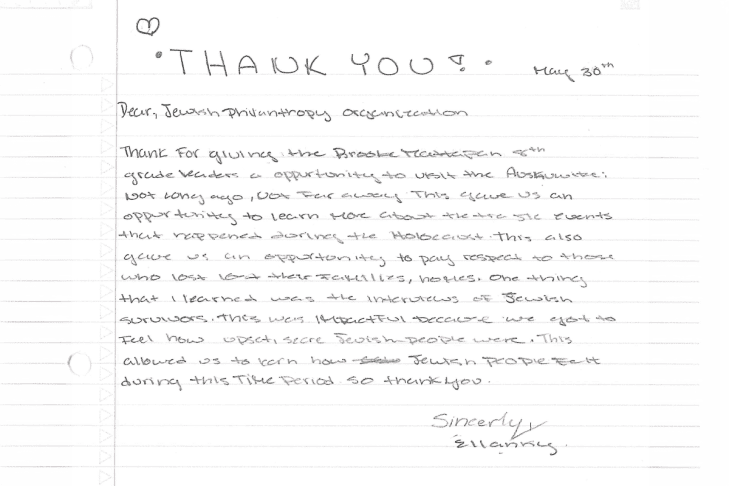 THANK YOU!
May 30th
Dear, Jewish Philanthropy organization
Thank For giving the Brooke Mattapan 8th
grade leaders a oppurtunity to visit the
Not Long ago, Not Far away This gave us an
oppurtunity to learn More about the events
that happened during the Holocaust. This also
gave us an oppurtunity to pay respect to those
who lost homes. One thing
that I learned was the interviews of Jewish
survivors. This was IMpactFul because we got to
Feel how upset, Jewish people were. This
allowed us to learn how Jewish People Felt
during this TiMe Period so thank you.
Sincerly,